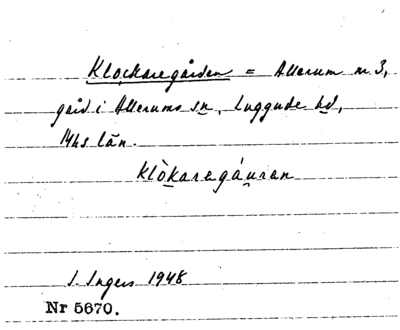 Klockaregården = Allerum nr 3,
gård i Allerums sn, Luggude hd,
Mhs län.
Klòkaregáuran
I. Ingers 1948
Nr 5670.